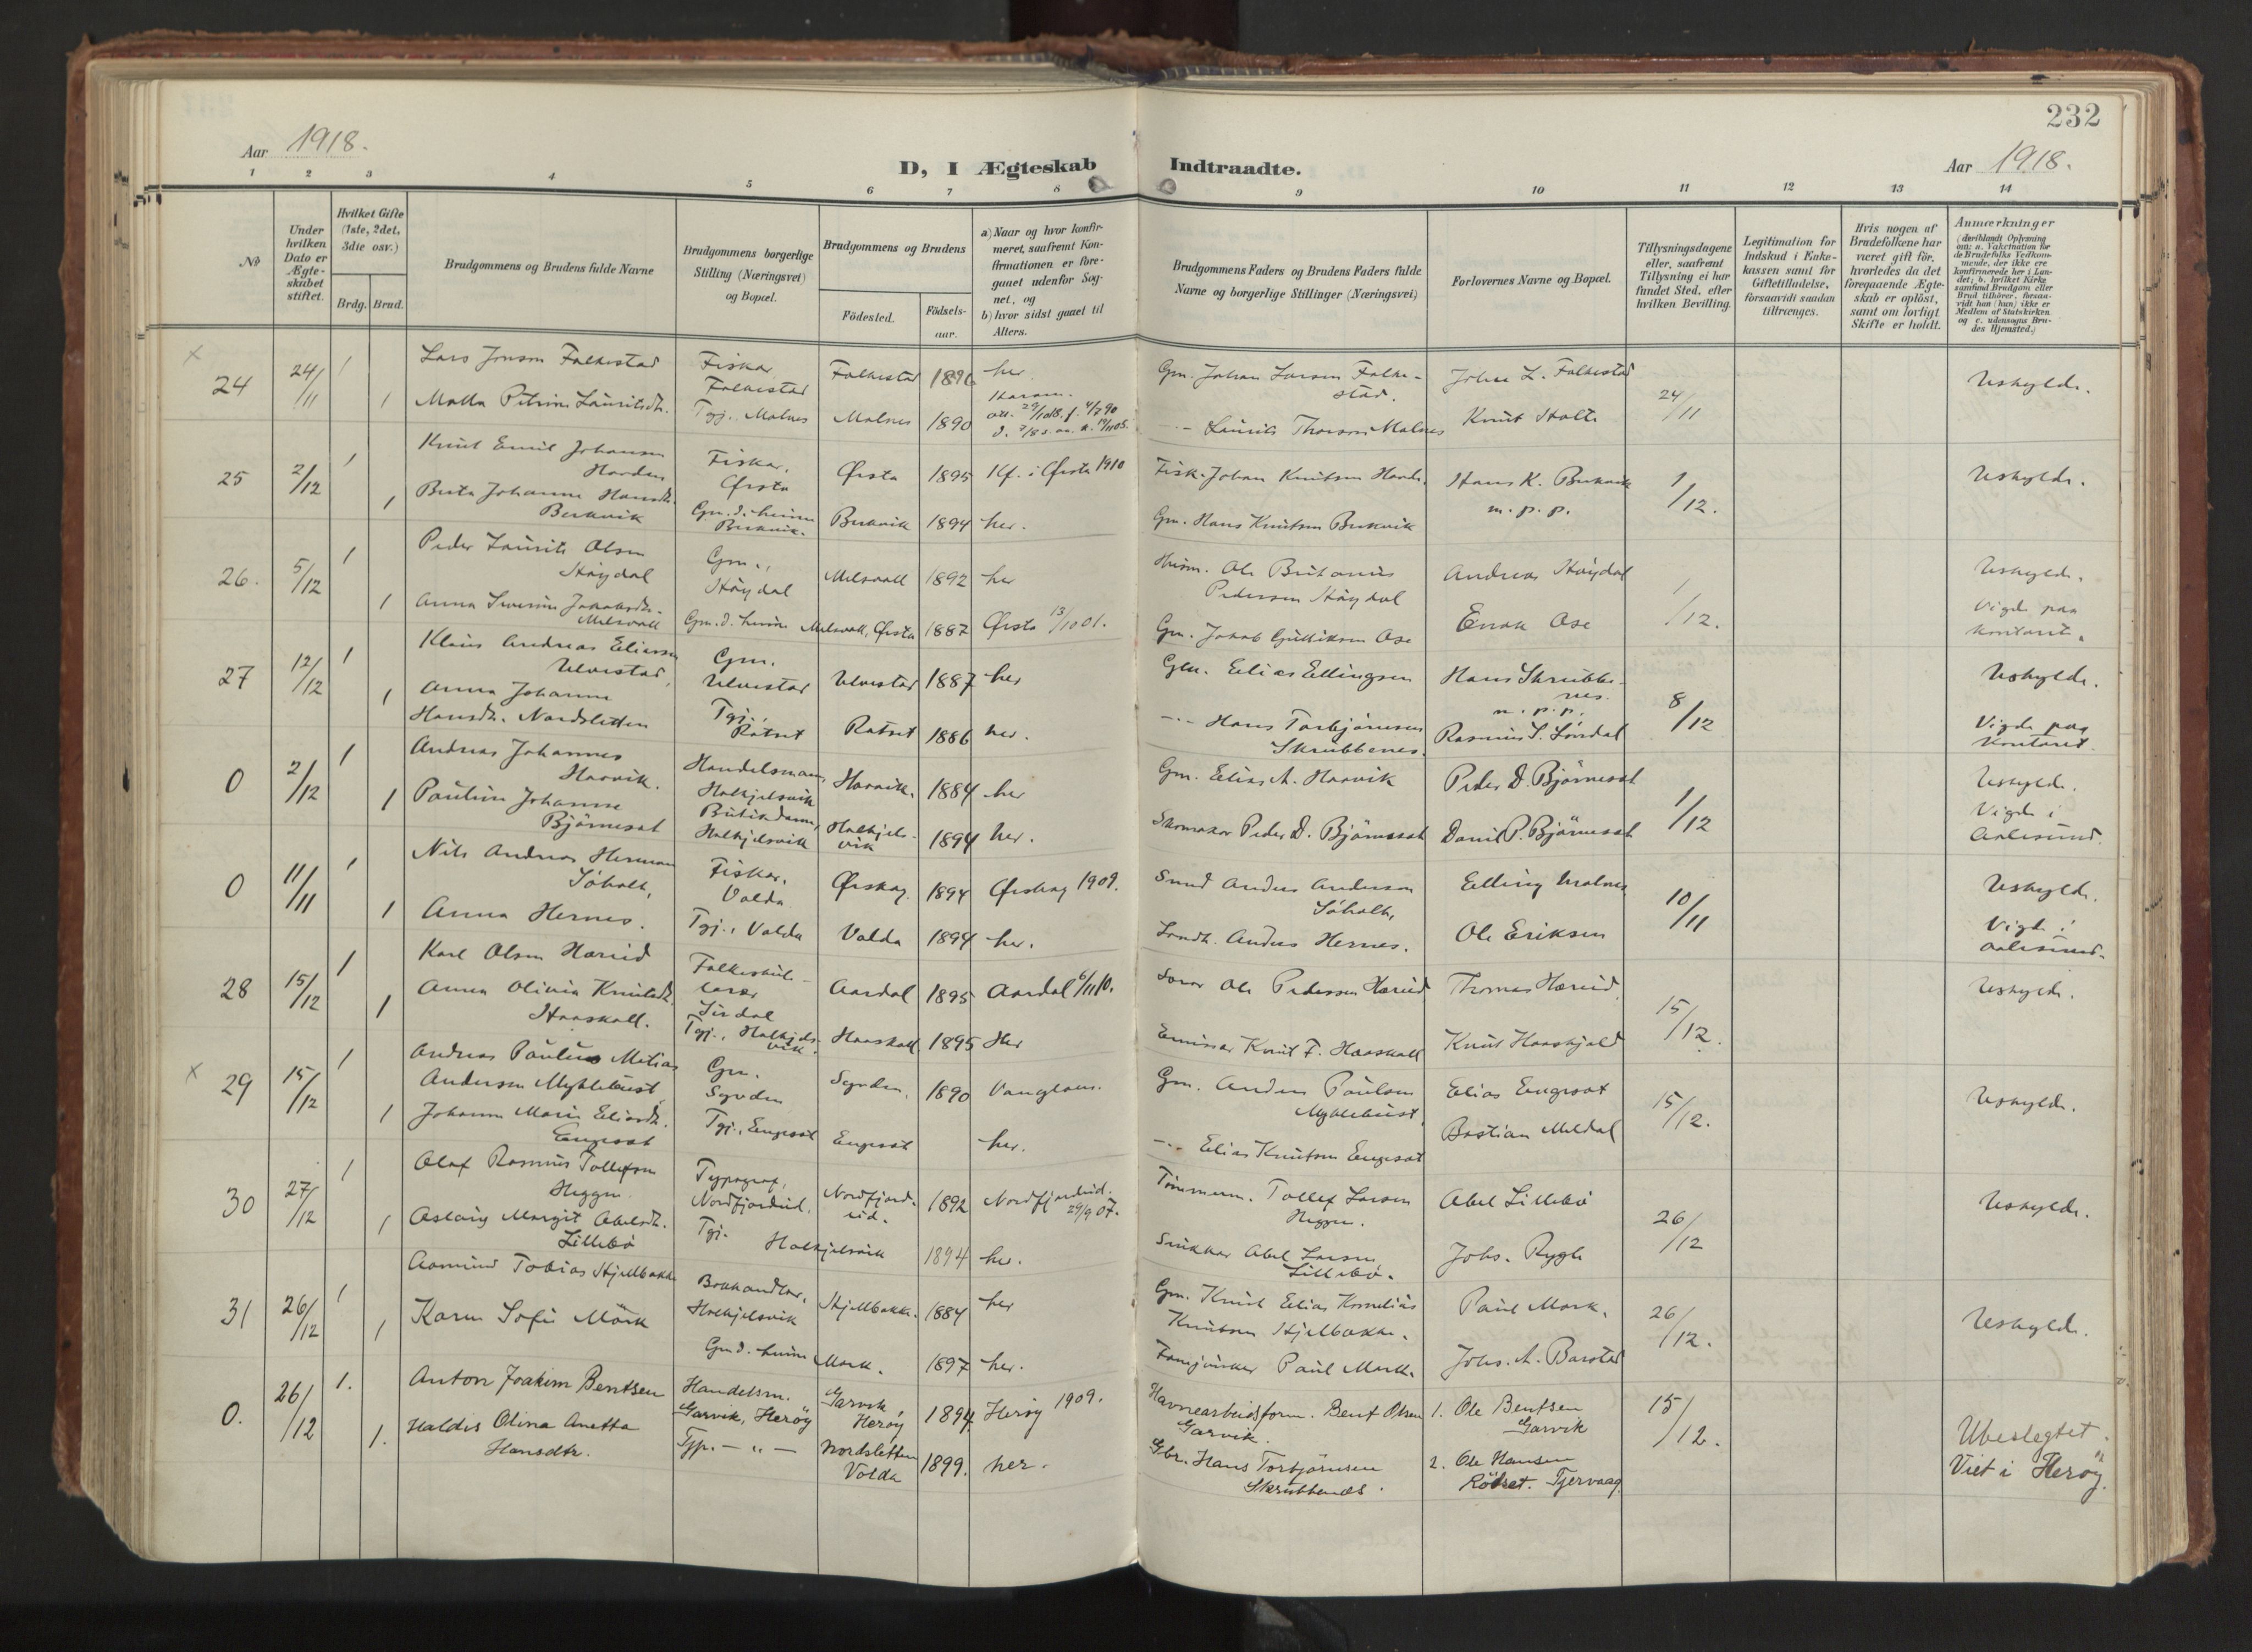 232
Aar 1918.
D, I Ægteskab Indtraadte.
Aar 1918.
1 2 3 4 5 6 7 8 9 10 11 12 13 14
No
Under hvilken Dato er Ægteskabet stiftet.
Hvilket Gifte (1ste, 2det, 3die osv.)
Brdg. Brud.
Brudgommens og Brudens fulde Navne
Brudgommens borgerlige Stilling (Næringsvei) og Bopæl.
Brudgommens og Brudens
Födested.
Födselsaar.
a) Naar og hvor konfirmeret, saafremt Konfirmationen er foregaaet udenfor Sognet, og
b) hvor sidst gaaet til Alters.
Brudgommens Faders og Brudens Faders fulde Navne og borgerlige Stillinger (Næringsvei)
Forlovernes Navne og Bopæl.
Tillysningsdagene eller, saafremt Tillysning ei har fundet Sted, efter hvilken Bevilling.
Legitimation for Indskud i Enkekassen samt for Giftetilladelse, forsaavidt saadan tiltrænges.
Hvis nogen af Brudefolkene har været gift för, hvorledes da det foregaaende Ægteskab er oplöst, samt om lovligt Skifte er holdt.
Anmærkninger
(deriblandt Oplysning om: a. Vakcination for de Brudefolks Vedkommende, der ikke ere konfirmerede her i Landet; b. hvilket Kirkesamfund Brudgom eller Brud tilhörer, forsaavidt han (hun) ikke er Medlem af Statskirken og c. udensogns Brudes Hjemsted.)
x 24 24/11 1 Lars Jonsen Folkestad Fiskar Folkestad Folkestad 1896 her. Gm. Johan Larsen Folkestad. Johan L. Folkestad 24/11 Uskylde.
1 Matta Petrine Lauritsdtr. Tgj. Malnes Malnes 1890 Haram. Laurits Thorsen Malnes Knut Holte
25 2/12 1 Knut Emil Johansen Hovden Fiskar, Ørsta Ørsta 1895 Kf. i Ørsta 1910 Fisk. Johan Knutsen Hovde. Hans K. Bukvik m. p. p. 1/12. Uskylde.
1 Berta Johanne Hansdtr. Berkvik Gm. d. heime Berkvik. Berkvik 1894 her. Gm. Hans Knutsen Berkvik
26. 5/12 1 Peder Laurits Olsen Höydal Gm., Höydal Melsvoll 1892 her Husm. Ole Britanus Pedersen Höydal Andreas Höydal 1/12. Uskylde.
1 Anna Severine Jakobsdtr. Melsvoll Gm. d. heime Melsvoll, Ørsta 1887 Ørsta 13/10 01. Gm. Jakob Gullikson Ose Enok Ose Vigde paa kontoret.
27 12/12 1 Klaus Andreas Eliassen Ulvestad, Gm. Ulvestad Ulvestad 1887 her Gm. Elias Ellingsen Hans Skrubbenes. m. p. p. 8/12 Uskylde.
1 Anna Johanne Hansdtr. Nordsletten Tgj., Rotset Rotset 1886 her. Hans Torbjörnsen Skrubbenes. Rasmus S. Lövdal Vigde paa kontoret.
0 2/12 1 Andreas Johannes Haavik. Handelsmann, Halkjelsvik Haavik. 1884 her Gm. Elias A. Haavik Peder D. Björneset 1/12 Uskylde.
1 Pauline Johanne Björneset Butikdame, Halkjelsvik Halkjelsvik 1894 her. Skomakar Peder D. Björneset Daniel P. Björneset Vigde i Aalesund.
0 11/11 1 Nils Andreas Herman Söholt, Fiskar, Volda Ørskog. 1894 Ørskog 1909. Smed Anders Andersen Söholt, Elling Malnes 10/11 Uskylde.
1 Anna Hernes. Tgj., Volda Volda 1894 her. Landh. Anders Hernes. Ole Eriksen Vigde i Aalesund.
28 15/12 1 Karl Olsen Hæreid Folkeskulelærar Sirdal Aardal 1895 Aardal 6/11 10. Ole Pedersen Hæreid Thomas Hæreid 15/12. Uskylde.
1 Anna Olivia Knutsdtr. Haaskoll. Tgj., Halkjelsvik. Haaskoll 1895 Her Emissær Knut F. Haaskoll Knut Haaskjold
x 29 15/12 1 Andreas Paulus Matias Andersen Myklebust, Gm. Syvden Syvden, 1890 Vanylven. Gm. Anders Paulsen Myklebust, Elias Engeset 15/12. Uskylde.
1 Johanne Marie Eliasdtr. Engeset Tgj., Engeset Engeset her. Elias Knutsen Engeset Bastian Meldal
30 27/12 1 Olaf Rasmus Tollefsen Heggen. Typograf, Nordfjordeid. Nordfjordeid. 1892 Nordfjordeid. 29/9 07. Tömmerm. Tollef Larsen Heggen. Abel Lillebö 26/12 Uskylde.
1 Aslaug Margit Abelsdtr. Lillebö Tgj. Halkjelsvik 1894 her. Snikkar Abel Larsen Lillebö. Johs. Rygh
31 26/12 1 Aamund Tobias Hjellbakke Bokhandlar, Halkjelsvik Hjellbakke. 1884 her Gm. Knut Elias Kornelius Knutsen Hjellbakke. Paul Mork. 26/12. Uskylde.
1 Karen Sofie Mörk Gm d. heime Mork. 1897 her. Paul Mork. Johs. A. Barstad
0. 26/12 1. Anton Joakim Bentsen Handelsm. Garvik, Heröy Garvik, Heröy 1894 Heröy 1909. Havnearbeidsform. Bent Olsen Garvik. 1. Ole Bentsen Garvik 15/12. Ubeslegtet.
1. Haldis Olina Anetta Hansdtr. Tjp. — „ — Nordsletten Volda 1899. her. Gbr. Hans Torbjörnsen Skrubbenes. 2. Ole Hansen Rödset. Tjervaag. Viet i Heröy.